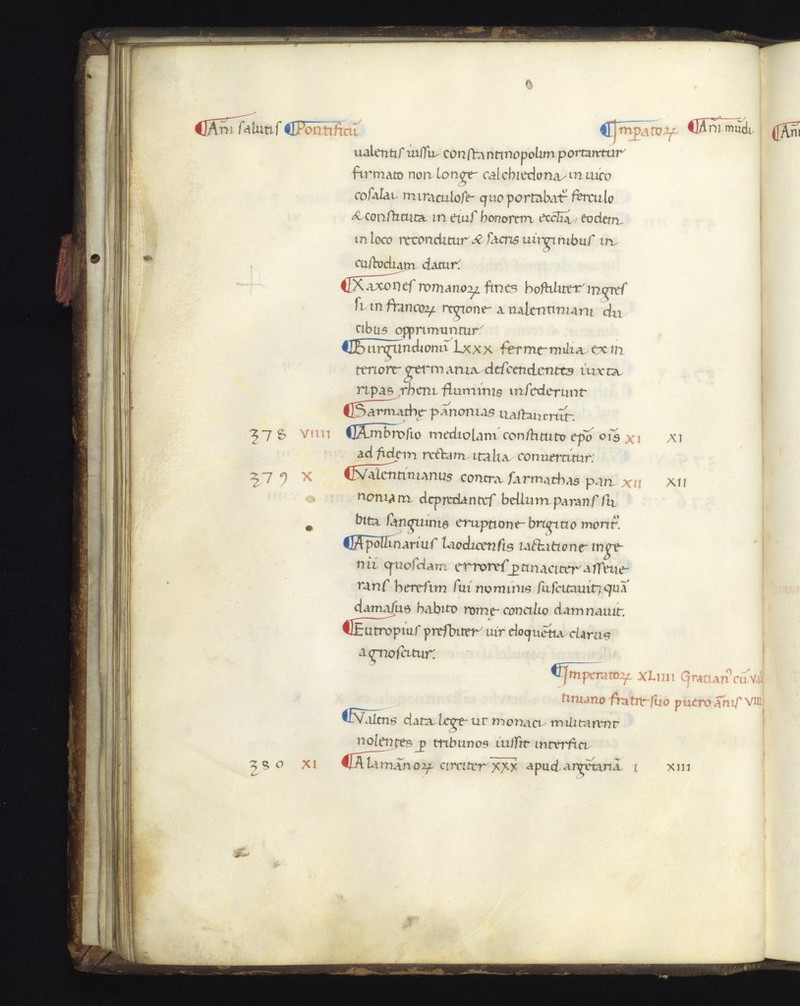 ¶Ani salutis ¶Pontificū ¶Imꝑatoꝝ ¶Ani mūdi ¶Ani
ualentis iussu constantinopolim portaretur
firmato non longe calchedona in uico
cosalai miraculose quo portabat᷑ ferculo
& constituta in eius honorem ecclīa eodem
in loco reconditur & sacris uirginibus in
custodiam datur.
¶Xaxones romanoꝝ fines hostiliter ingres
si in francoꝝ regione a ualentiniani du
cibus opprimuntur
¶Burgundionū Lxxx ferme milia ex in
teriore germania descendentes iuxta
ripas rheni fluminis insederunt
¶Sarmathe pānonias uastauerūt.
378 VIIII ¶Ambrosio mediolani constituto epō oīs XI XI
ad fidem rectam italia conuertitur.
379 X ¶Valentinianus contra sarmathas pan XII XII
noniam depredantes bellum parans su
bita sanguinis eruptione brigitio morit᷑.
¶Apollinarius laodicensis iactatione inge
nii quosdam errores ꝑtinaciter asseue
rans heresim sui nominis suscitauit, quā
damasus habito rome concilio damnauit.
¶Eutropius presbiter uir eloquētia clarus
agnoscitur.
¶Imperatoꝝ XLIIII Gratianꝰ cū Val
tiniano fratre suo puero ānis VIII
¶Valens data lege ut monaci militarent
nolentes ꝑ tribunos iussit interfici
380 XI ¶Alamānoꝝ circiter xxx apud argētariā I XIII